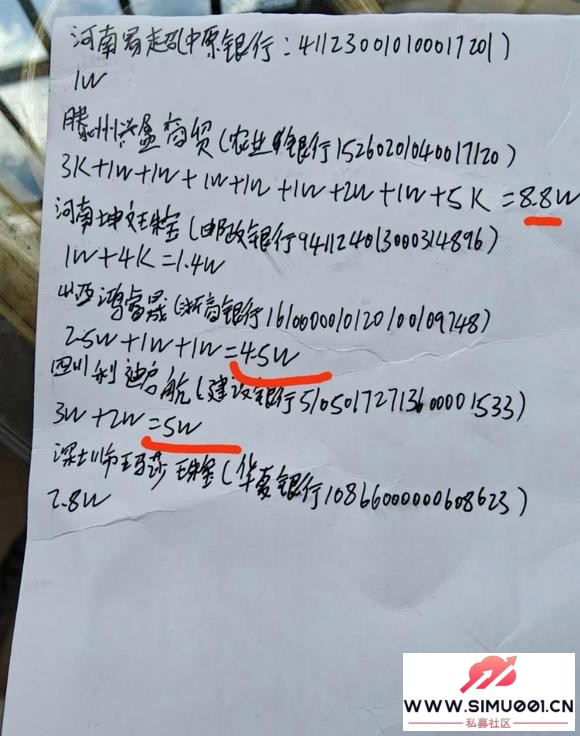 河南易超凡(中原银行:411230010100017201)
1W
滕州兴盈商贸(农业银行15260201040017120)
3K+1W+1W+1W+1W+1W+2W+1W+5K=8.8W
河南坤文珠宝(邮政银行941124013000314896)
1W+4K=1.4W
鸿富晟(浙商银行1610000010120100109748)
2.5W+1W+1W=4.5W
四川利迪启航(建设银行51050172713600001533)
3W+2W=5W
深圳市玛莎珠宝(华夏银行10866000000608623)
2.8W
WWW.SIMU001.CN
私募社区